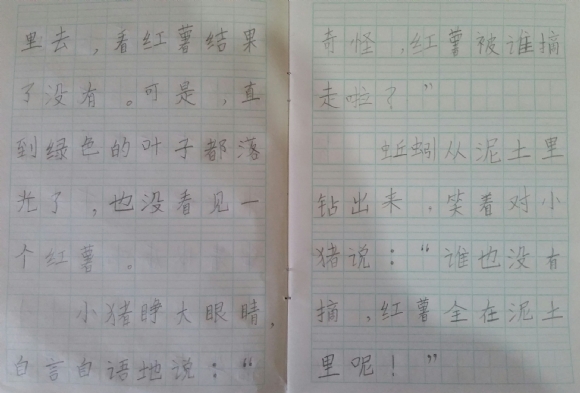 里去，看红薯结果
了没有。可是，直
到绿色的叶子都落
光了，也没看见一
个红薯。
小猪睁大眼睛，
自言自语地说：“
奇怪，红薯被谁摘
走啦？”
蚯蚓从泥土里
钻出来，笑着对小
猪说：“谁也没有
摘，红薯全在泥土
里呢！”